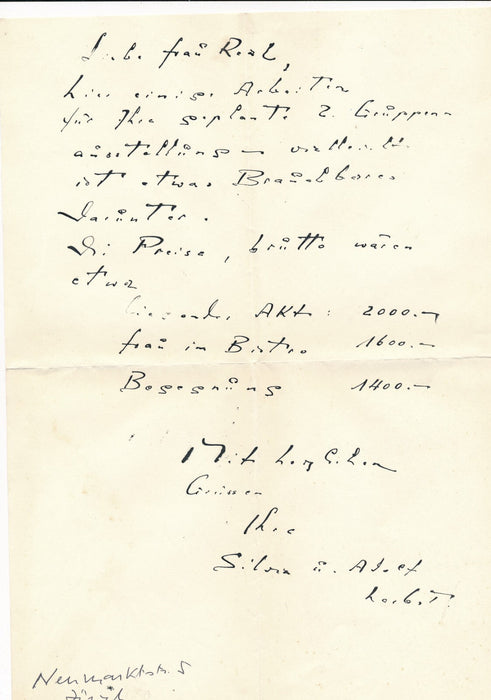 Liebe Frau Real,
hier einige Arbeiten
für Ihre geplante 2. Gruppen
ausstellung – vielleicht
ist etwas Brauchbares
darunter.
Die Preise, brutto wären
etwa
liegender Akt: 2000.–
Frau im Bistro 1600.–
Begegnung 1400.–
Mit herzlichen
Grüssen
Ihre
Silvia u. Adolf
Herbst.
Neumarktstr. 5
Zürich